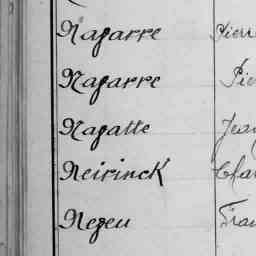 Nagarre Pierr
Nagarre Pie
Nagatte Jean
Neirinck Char
Negeu Fran